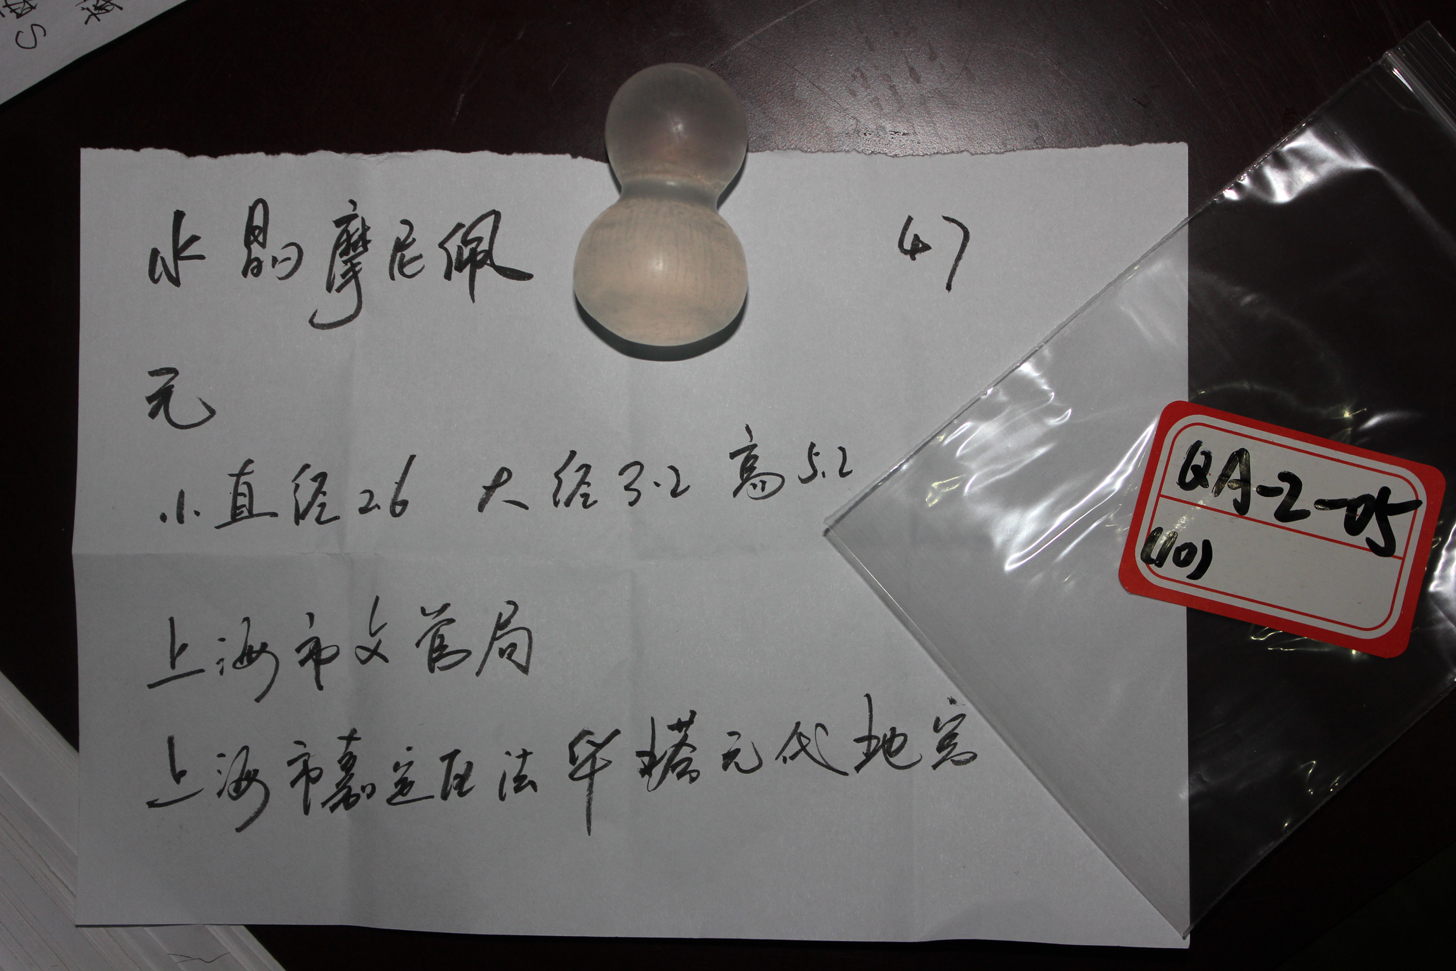 水晶摩尼佩
47
元
小直径2.6 大径3.2 高5.2
上海市文管局
上海市嘉定区法华塔元代地宫
QA-2-05
(10)